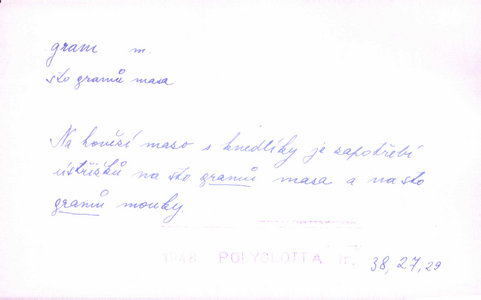 gram m.
sto gramů masa
Na hovězí maso s knedlíky je zapotřebí
ústřižků na sto gramů masa a na sto
gramů mouky.
1948 POLYGLOTTA
38, 27, 29